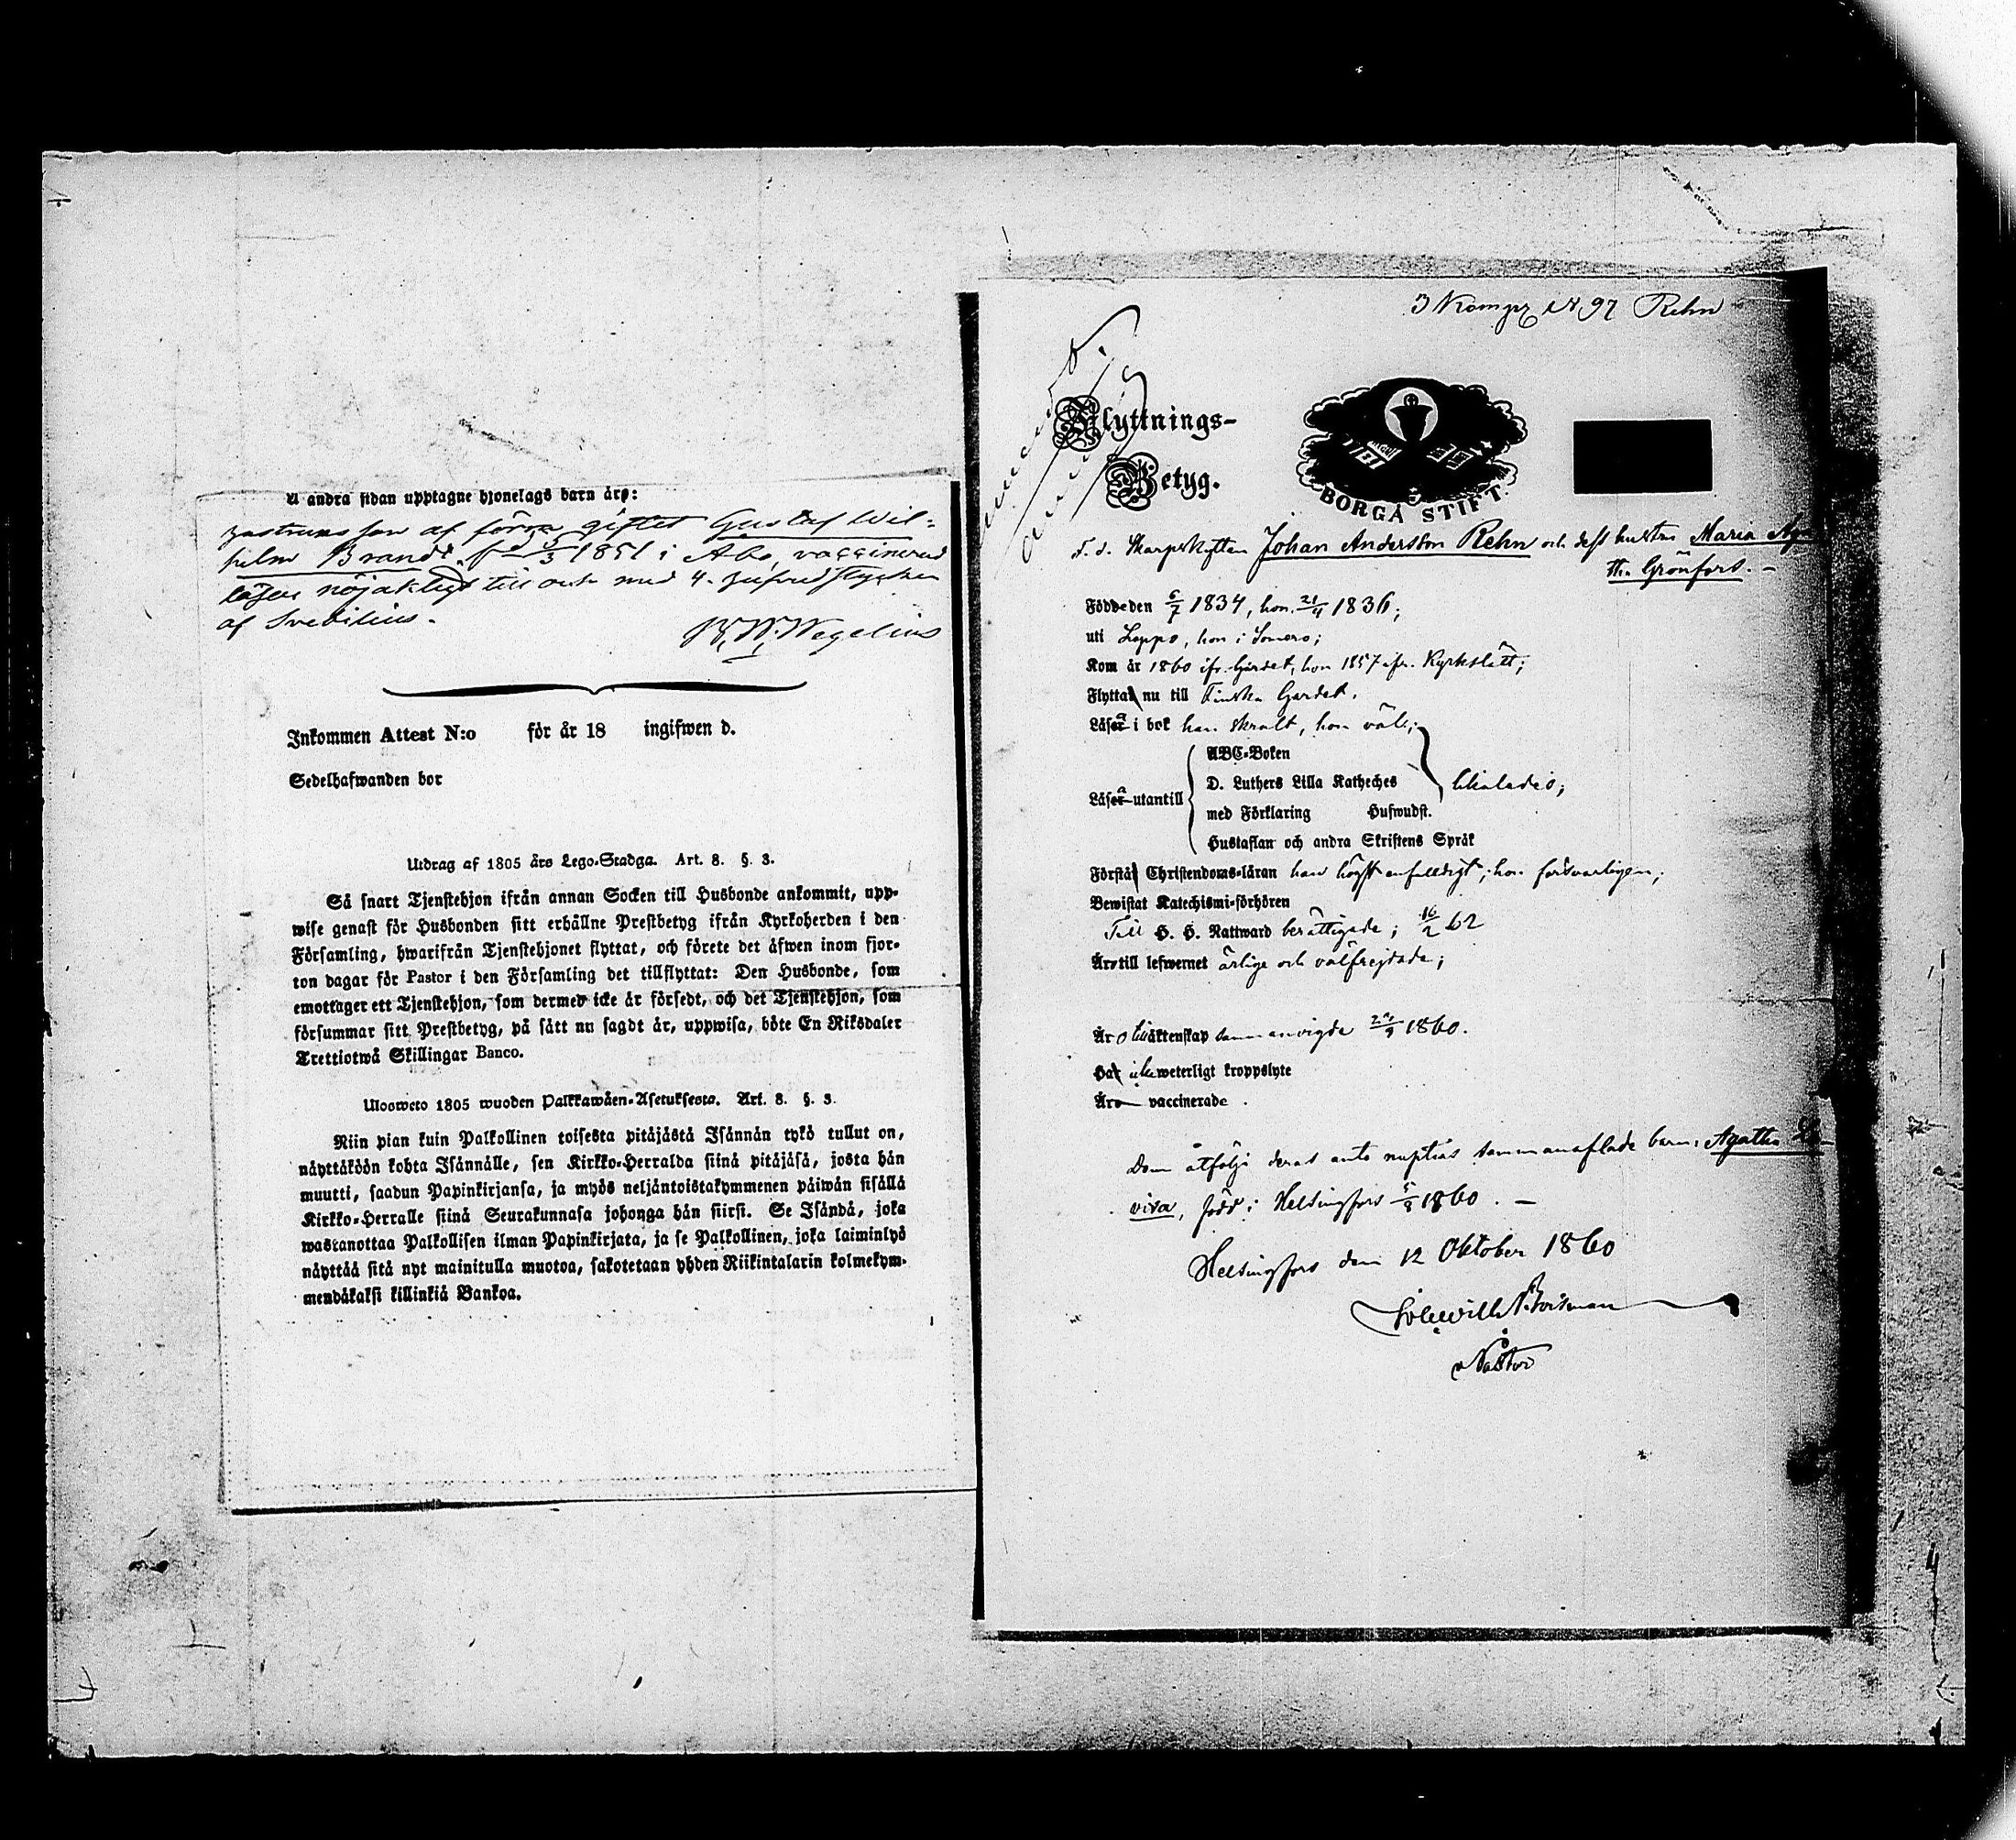 å andra sidan upptagne hjonelags barn äro:
hustruns son af förra giftet Gustaf Wil-
helm Brandt, f. 1851 i Åbo, vaccinerad
läser nöjaktigt till och med 4. hufvudstycken
af Svebilius.
Wegelius
Inkommen Attest N:o för år 18 ingifwen d.
Sedelhafwanden bor
Utdrag af 1805 års Lego-Stadga. Art. 8. §. 3.
Så snart Tjenstehjon ifrån annan Socken till Husbonde ankommit, upp-
wise genast för Husbonden sitt erhållne Prestbetyg ifrån Kyrkoherden i den
Församling, hwarifrån Tjenstehjonet flyttat, och förete det äfwen inom fjor-
ton dagar för Pastor i den Församling det tillflyttat: Den Husbonde, som
emottager ett Tjenstehjon, som dermed icke är försedt, och det Tjenstehjon, som
försummar sitt Prestbetyg, på sätt nu sagdt är, uppwisa, böte En Riksdaler
Trettiotwå Skillingar Banco.
Ulosweto 1805 wuoden Palkkawäen-Asetuksesta. Art. 8. §. 3.
Niin pian kuin Palkollinen toisesta pitäjästä Isännän tykö tullut on,
näyttäköön kohta Isännälle, sen Kirkko-Herralda siinä pitäjäsä, josta hän
muutti, saadun Papinkirjansa, ja myös neljäntoistakymmenen päiwän sisällä
Kirkko-Herralle siinä Seurakunnasa johonga hän siirsi. Se Isändä, joka
wastanottaa Palkollisen ilman Papinkirjata, ja se Palkollinen, joka laiminlyö
näyttää sitä nyt mainitulla muotoa, sakotetaan yhden Riikintalarin kolmekym-
mendäkaksi killinkiä Bankoa.
3 Komp. N 97 Rehn
Flyttnings-
Betyg.
BORGÅ STIFT.
F. d. Skarpskytten Johan Andersson Rehn och dess hustru Maria Aga-
tha Grönfors. –
Födde den 6/7 1834, hon 21/4 1836;
uti Loppo, hon i Somero;
Kom år 1860 ifr. Gardet, hon 1857 ifr. Kyrkslätt;
Flytta nu till Finska Gardet.
Läsa i bok han skralt, hon väl;
ABC-Boken
D. Luthers Lilla Katheches
Läsa utantill
med Förklaring Hufwudst.
Hustaflan och andra Skriftens Språk
likaledes;
Förstå Christendoms-läran han högst enfaldigt; hon försvarligen;
Bewistat Katechismi-förhören
Till H. H. Nattward berättigade; 16/2 62
Äro till lefwernet ärlige och välfrejdade;
Äro till äktenskap sammanvigde 1860.
Ha icke weterligt kroppslyte
Äro vaccinerade.
Dem åtfölje deras ante nuptias sammanaflade barn: Agatha Lo-
visa, född i Helsingfors 1860. –
Helsingfors den 12 Oktober 1860
Pastor